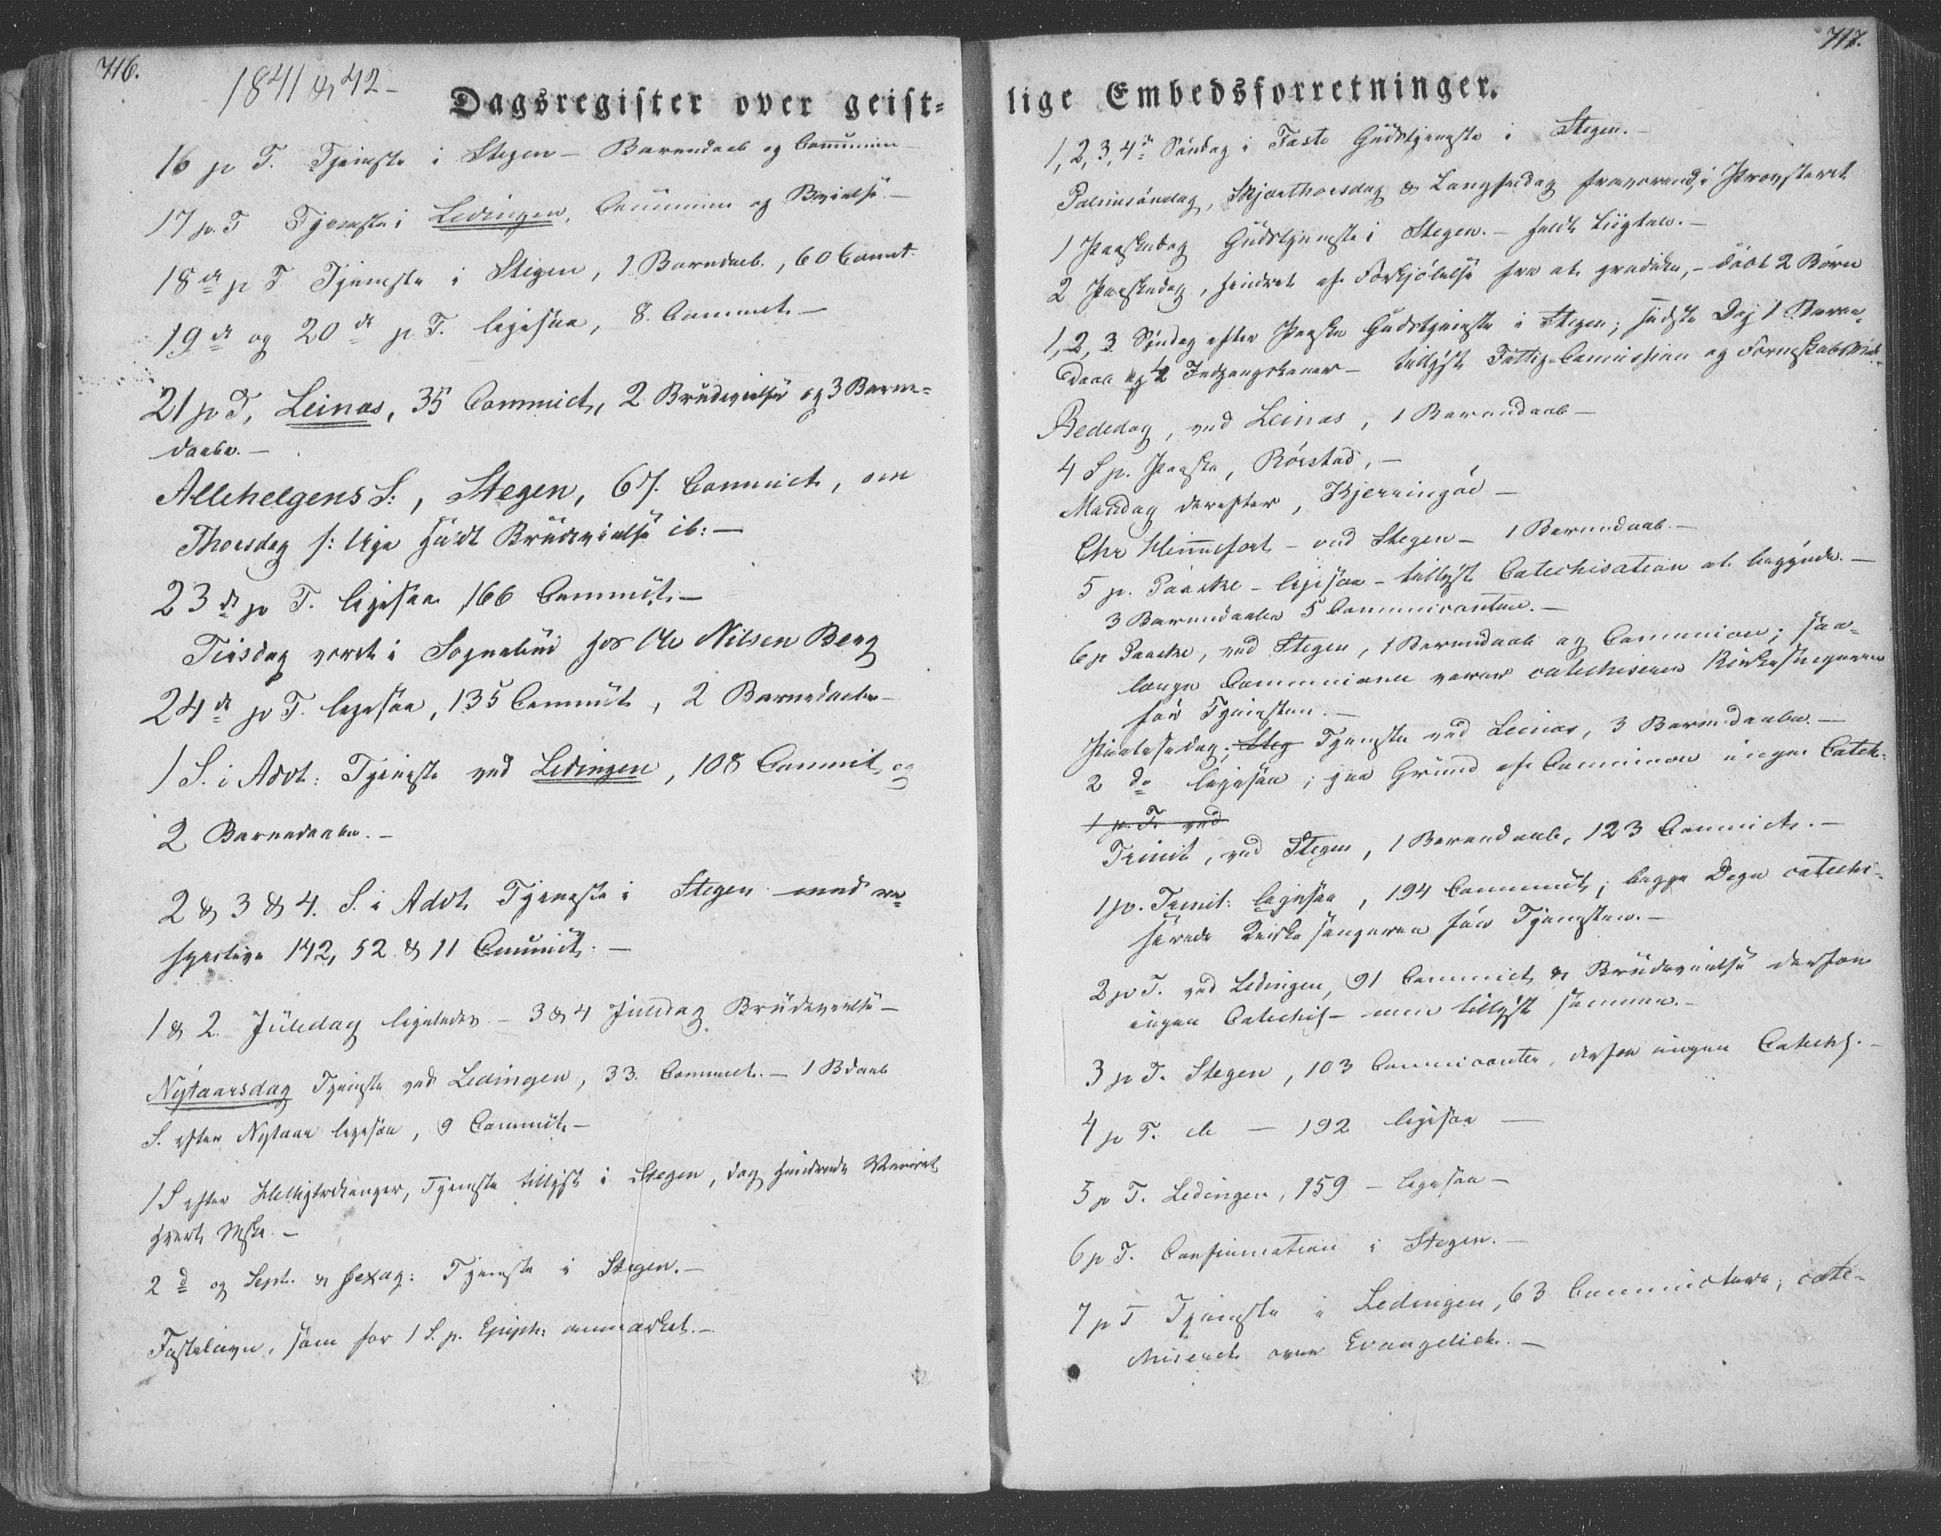 716.
1841 & 42 -
Dagsregister over geist-
16 p T. Tjeneste i Stegen - Barnedaab og Communion
17 p. T Tjeneste i Ledingen, Communion og Bvielse. -
18de p T Tjeneste i Stegen, 1 Barnedaab, 60 Commt.
19de og 20de p T. ligesaa, 8. Commct. -
21 p T, Leinæs, 35 Commict, 2 Brudevielse og 3 Barne-
daabe. -
Allehelgens S:, Stegen, 67. Commict, om
Thorsdag s: Uge holdt Brudevielse ib: -
23de p T. ligesaa 166 Commct. -
Tirsdag været i Sognebud hos Ole Nilsen Berg
24de p T. ligesaa, 135 Commct, 2 Barnedaabe -
1 S. i Advt: Tjeneste ved Ledingen, 108 Commict og
2 Barnedaabe. -
2 & 3 & 4. S. i Advt Tjeneste i Stegen med re-
spective 142, 52 & 11 Comunict. -
1 & 2 Juledag ligeledes - 3 & 4 Juledag Brudevielse -
Nÿtaarsdag Tjeneste ved Ledingen, 33. Commct. - 1 Bdaab
S. efter Nytaar ligesaa, 9 Commct. -
1 S efter Helligtrekonger, Tjeneste tillyst i Stegen, dog hindrede Veiret
hvert Mske. -
2d og Sept. & Sexag: Tjeneste i Stegen. -
Fastelavn, som for 1 S. p. Epiph: anmærket. -
717.
lige Embedsforretninger.
1, 2, 3, 4de Søndag i Faste Gudstjeneste i Stegen. -
Palmesøndag, Skjærthorsdag & Langfredag fraværende i Provsteret
1 Paaskedag Gudstjeneste i Stegen. - holdt Liigtale. -
2 Paaskedag, hindret af Forkjølelse fra at prædike, - døbt 2 Børn
1, 2, 3 Søndag efter Paaske Gudstjeneste i Stegen; sidste Dag 1 Barne-
daab og 2 Indgangskoner - tillyst Fattig-Comission og
Bededag, ved Leinæs, 1 Barnedaab -
4 S p. Paaske, Rørstad, -
Mandag derefter, Kjerringøe -
Chr Himmelfart - ved Stegen - 1 Barnedaab. -
5 p. Paaske - ligesaa - tillyst Catechisation at begynde. -
3 Barnedaabe 5 Communicanter. -
6 p Paaske, ved Stegen, 1 Barnedaab og Communion; saa-
længe Communionen varer catechiserer Kirkesangeren
før Tjenesten. -
Pintsedag, Steg Tjeneste ved Leinæs, 3 Barnedaabe. -
2 do ligesaa; paa Grund af Communion ingen Catech.
1 p. T. ved
Trinit, ved Stegen, 1 Barnedaab, 123 Commict. -
1 p. Trinit: ligesaa, 194 Commict; begge Dage catechi-
serede Kirkesangeren før Tjenesten. -
2 p T. ved Ledingen, 91 Commict & Brudevielse derfor
ingen Catechis - men tillyst sammen. -
3 p T. Stegen, 103 Communicanter, derfor ingen Catechs. -
4 p T. do - 192 ligesaa -
5 p T. Ledingen, 159 - ligesaa -
6 p T. Confirmation i Stegen. -
7 p T Tjeneste i Ledingen, 63 Communictere; cate-
chiserede over Evangeliet. -